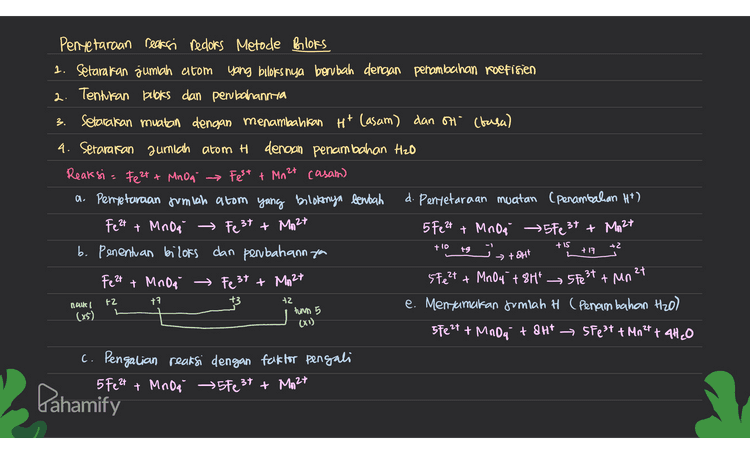 Penyetaraan reaksi redoks Metode Biloks
1. Setarakan jumlah atom yang biloksnya berubah dengan penambahan koefisien
2. Tentukan biloks dan perubahannya
3. Setarakan muatan dengan menambahkan H⁺ (asam) dan OH⁻ (basa)
4. Setarakan jumlah atom H dengan penambahan H₂O
Reaksi = Fe²⁺ + MnO₄⁻ → Fe³⁺ + Mn²⁺ (asam)
a. Penyetaraan jumlah atom yang biloksnya berubah
Fe²⁺ + MnO₄⁻ → Fe³⁺ + Mn²⁺
b. Penentuan biloks dan perubahannya
Fe²⁺ + MnO₄⁻ → Fe³⁺ + Mn²⁺
+2 +7 +3 +2
naik 1 (x5)
turun 5 (x1)
c. Pengalian reaksi dengan faktor pengali
5Fe²⁺ + MnO₄⁻ → 5Fe³⁺ + Mn²⁺
d. Penyetaraan muatan (penambahan H⁺)
5Fe²⁺ + MnO₄⁻ → 5Fe³⁺ + Mn²⁺
+10 -1 +15 +2
+9 → +8H⁺ +17
5Fe²⁺ + MnO₄⁻ + 8H⁺ → 5Fe³⁺ + Mn²⁺
e. Menyamakan jumlah H (Penambahan H₂O)
5Fe²⁺ + MnO₄⁻ + 8H⁺ → 5Fe³⁺ + Mn²⁺ + 4H₂O
Pahamify